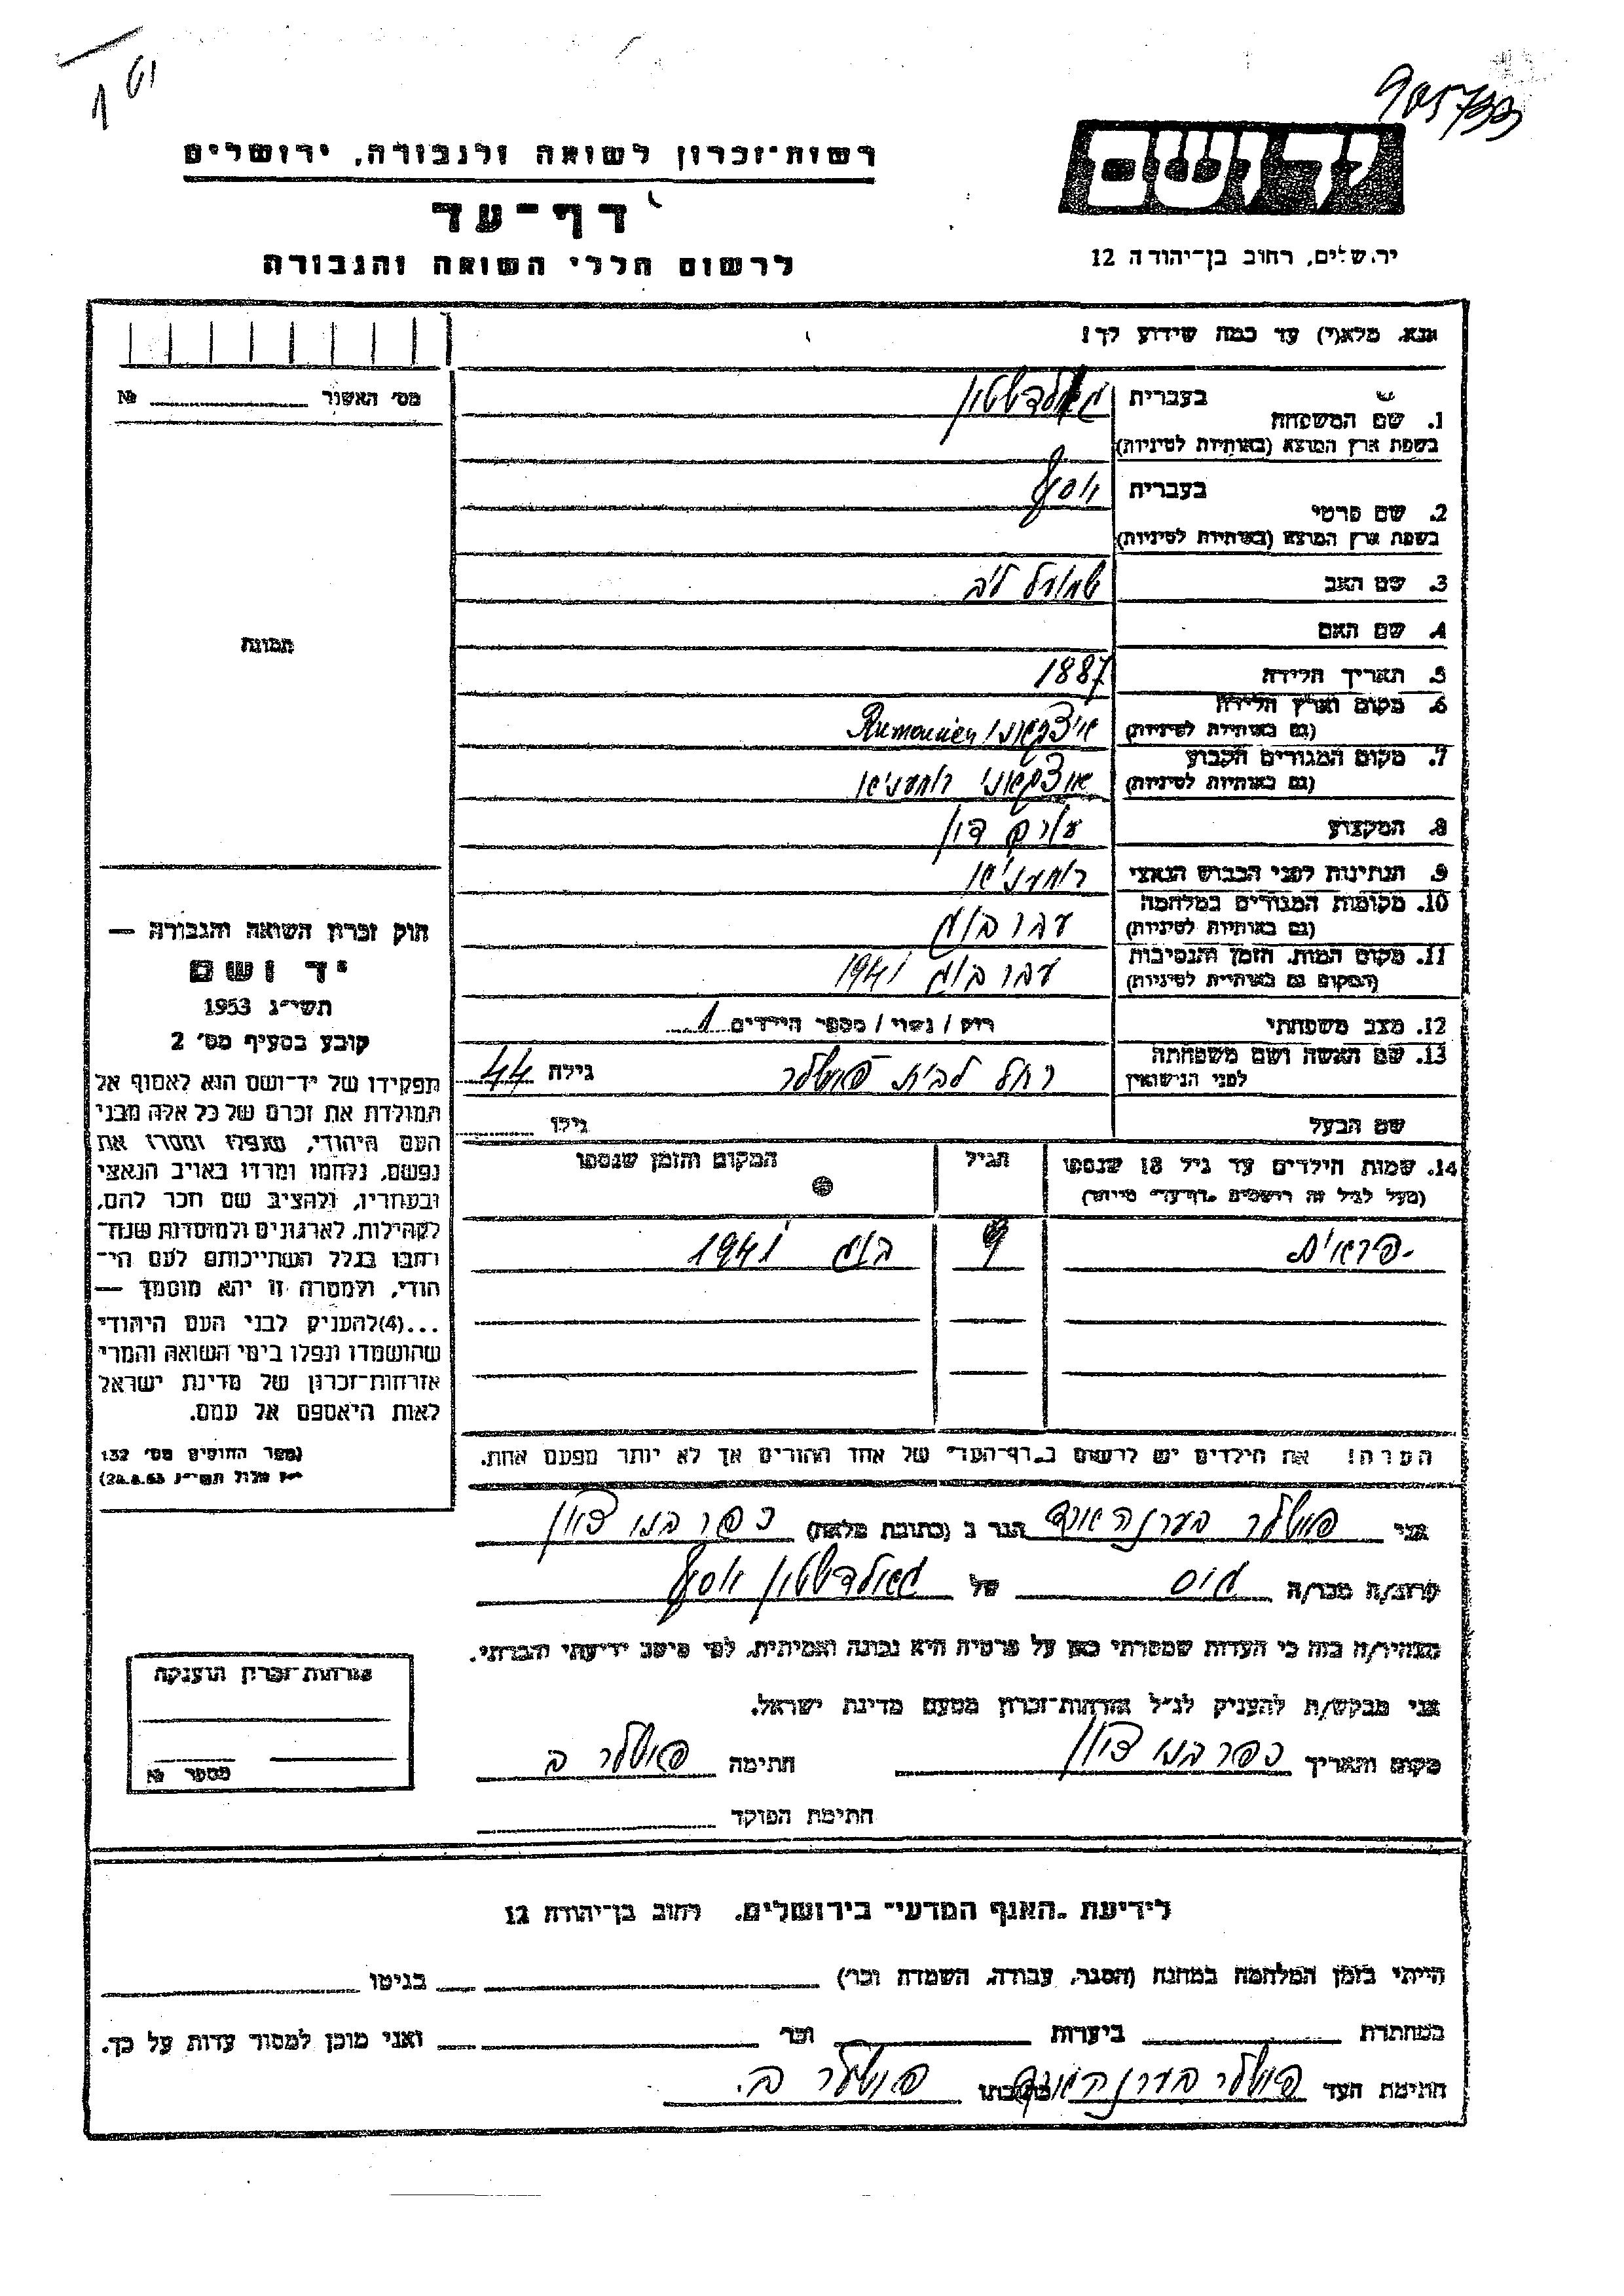 רשות־זכרון לשואה ולגבורה, ירושלים
דף־עד
לרשום חללי השואה והגבורה
יד ושם
ירושלים, רחוב בן־יהודה 12
נא מלא(י) עד כמה שידוע לך!
מס׳ האשור №
תמונה
1. שם המשפחה
בעברית גאלדשטיין
בשפת ארץ המוצא (באותיות לטיניות)
2. שם פרטי
בעברית יוסף
בשפת ארץ המוצא (באותיות לטיניות)
3. שם האב שמואל לייב
4. שם האם
5. תאריך הלידה 1887
6. מקום וארץ הלידה Rumänien
(גם באותיות לטיניות)
7. מקום המגורים הקבוע
(גם באותיות לטיניות)
8. המקצוע עורך דין
9. הנתינות לפני הכבוש הנאצי
10. מקומות המגורים במלחמה עבר בוג
(גם באותיות לטיניות)
11. מקום המות, הזמן והנסיבות עבר בוג 1941
(המקום גם באותיות לטיניות)
12. מצב משפחתי רוק / נשוי / מספר הילדים 1
13. שם האשה ושם משפחתה רחל לבית גילה 44
לפני הנישואין
שם הבעל גילו
14. שמות הילדים עד גיל 18 שנספו הגיל המקום והזמן שנספו
(מעל לגיל זה רושמים „דף־עד״ מיוחד)
9 בוג 1941
הערה! את הילדים יש לרשום ב„דף־העד״ של אחד ההורים אך לא יותר מפעם אחת.
חוק זכרון השואה והגבורה —
יד ושם
תשי״ג 1953
קובע בסעיף מס׳ 2
תפקידו של יד־ושם הוא לאסוף אל
המולדת את זכרם של כל אלה מבני
העם היהודי, שנפלו ומסרו את
נפשם, נלחמו ומרדו באויב הנאצי
ובעוזריו, ולהציב שם וזכר להם,
לקהילות, לארגונים ולמוסדות שנח־
רבו בגלל השתייכותם לעם הי־
הודי, ולמטרה זו יהא מוסמך —
...(4) להעניק לבני העם היהודי
שהושמדו ונפלו בימי השואה והמרי
אזרחות־זכרון של מדינת ישראל
לאות היאספם אל עמם.
(ספר החוקים מס׳ 132
אני הגר ב (כתובת מלאה)
קרוב/ה מכר/ה גיס של גאלדשטיין יוסף
מצהיר/ה בזה כי העדות שמסרתי כאן על פרטיה היא נכונה ואמיתית, לפי מיטב ידיעתי והכרתי.
אני מבקש/ת להעניק לנ״ל אזרחות־זכרון מטעם מדינת ישראל.
מקום ותאריך חתימה
חתימת הפוקד
אזרחות־זכרון הוענקה
מספר №
לידיעת „האגף המדעי״ בירושלים, רחוב בן־יהודה 12
הייתי בזמן המלחמה במחנה (הסגר, עבודה, השמדה וכו׳) בגיטו
במחתרת ביערות וכו׳ ואני מוכן למסור עדות על כך.
חתימת העד כתובתו